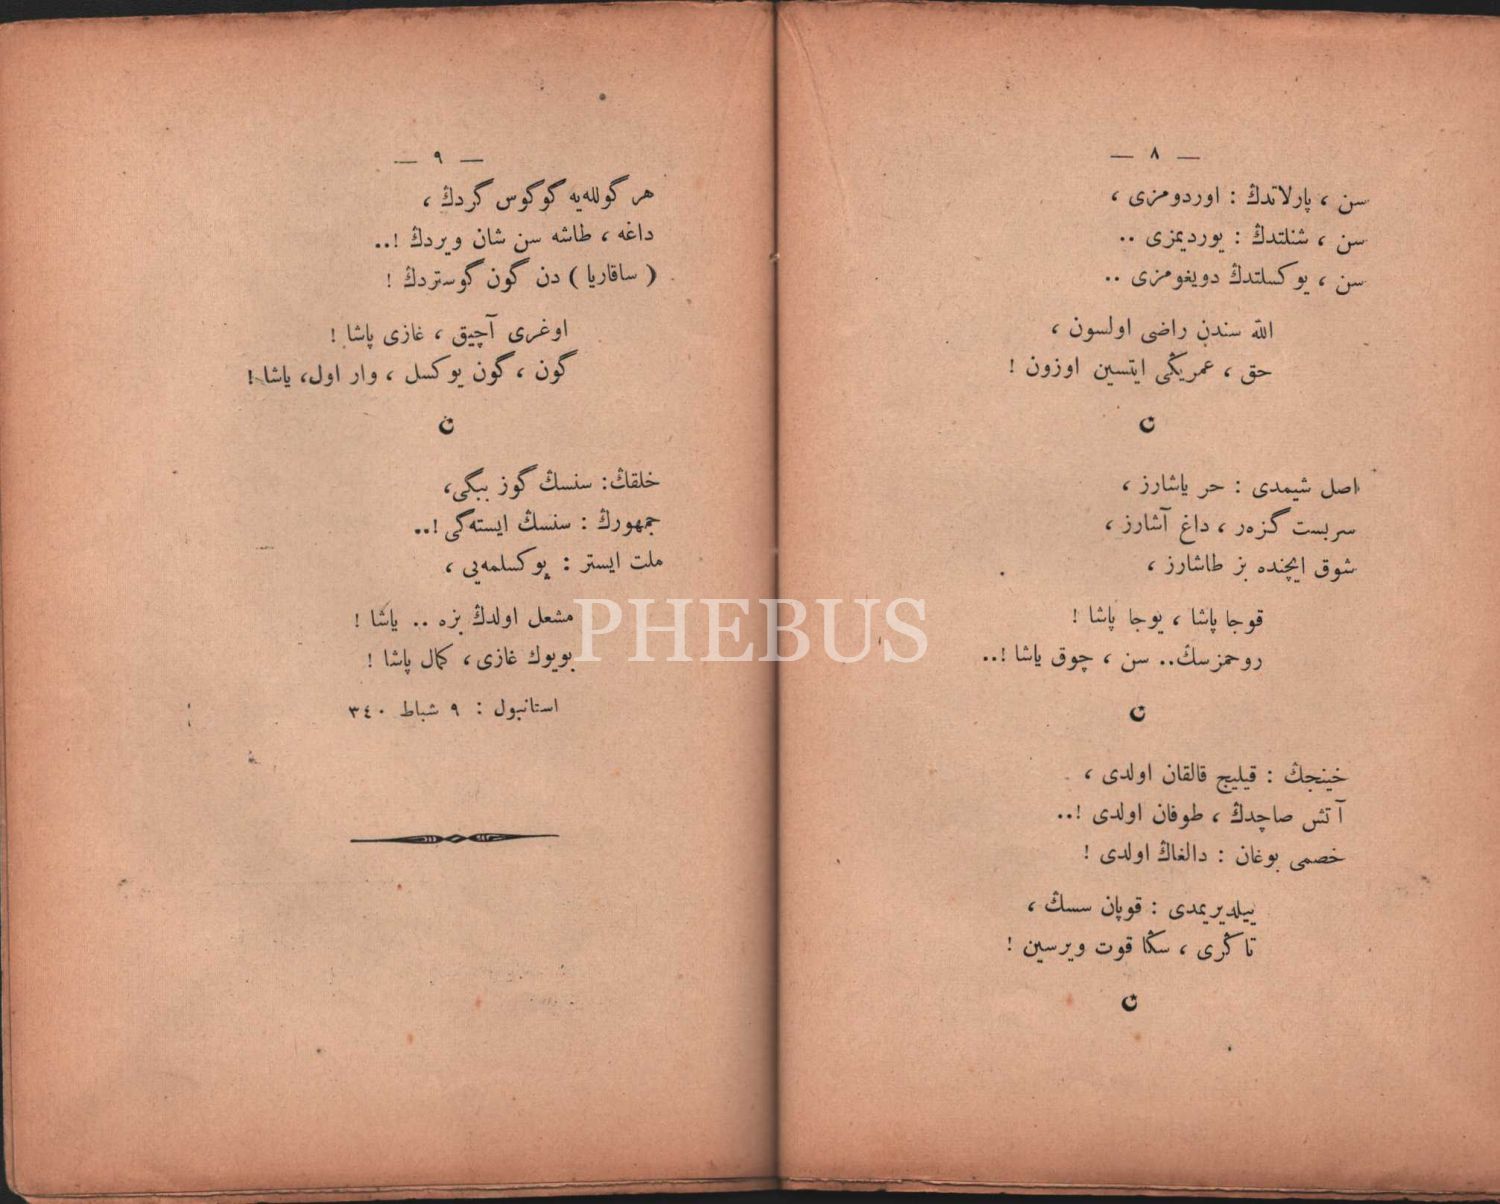 — ٨ —
سن ، پارلاتدڭ : اوردومزی ،
سن ، شنلتدڭ : یوردیمزی ..
سن ، یوكسلتدڭ دویغومزی ..
اللّه سندن راضی اولسون ،
حق ، عمریڭی ایتسین اوزون !
اصل شیمدی : حر یاشارز ،
سربست گزەر ، داغ آشارز ،
شوق ایچنده بز طاشارز ،
قوجا پاشا ، یوجا پاشا !
روحمزسڭ.. سن ، چوق یاشا !..
خینجڭ : قیلیج قالقان اولدی ،
آتش صاچدڭ ، طوفان اولدی !..
خصمی بوغان : دالغاڭ اولدی !
ییلدیریمدی : قوپان سسڭ ،
تاڭری ، سڭا قوت ویرسین !
— ٩ —
هر گوللەیه گوگوس گردڭ ،
داغه ، طاشه سن شان ویردڭ !..
( ساقاریا ) دن گون گوستردڭ !
اوغری آچیق ، غازی پاشا !
گون ، گون یوكسل ، وار اول، یاشا !
خلقڭ: سنسڭ گوز ببگی،
جمهورڭ : سنسڭ ایستەگی !..
ملت ایستر : یوكسلمەیی ،
مشعل اولدڭ بزه .. یاشا !
بویوك غازی ، كمال پاشا !
استانبول : ٩ شباط ٣٤٠
PHEBUS